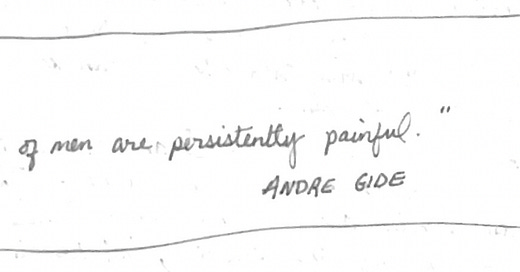 of men are persistently painful."
ANDRE GIDE